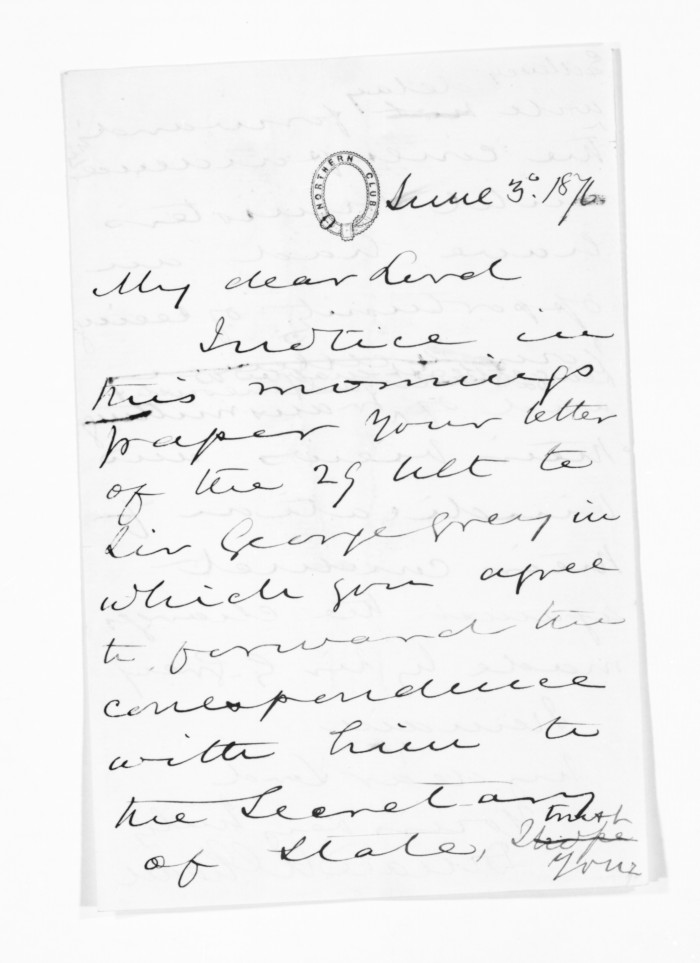 NORTHERN CLUB
June 3º. 1876
My dear Lord
I notice in
this mornings
paper your letter
of the 29 Ult to
Sir George Grey in
which you agree
to forward the
correspondence
with him to
the Secretary
trust
of State, I hope
your